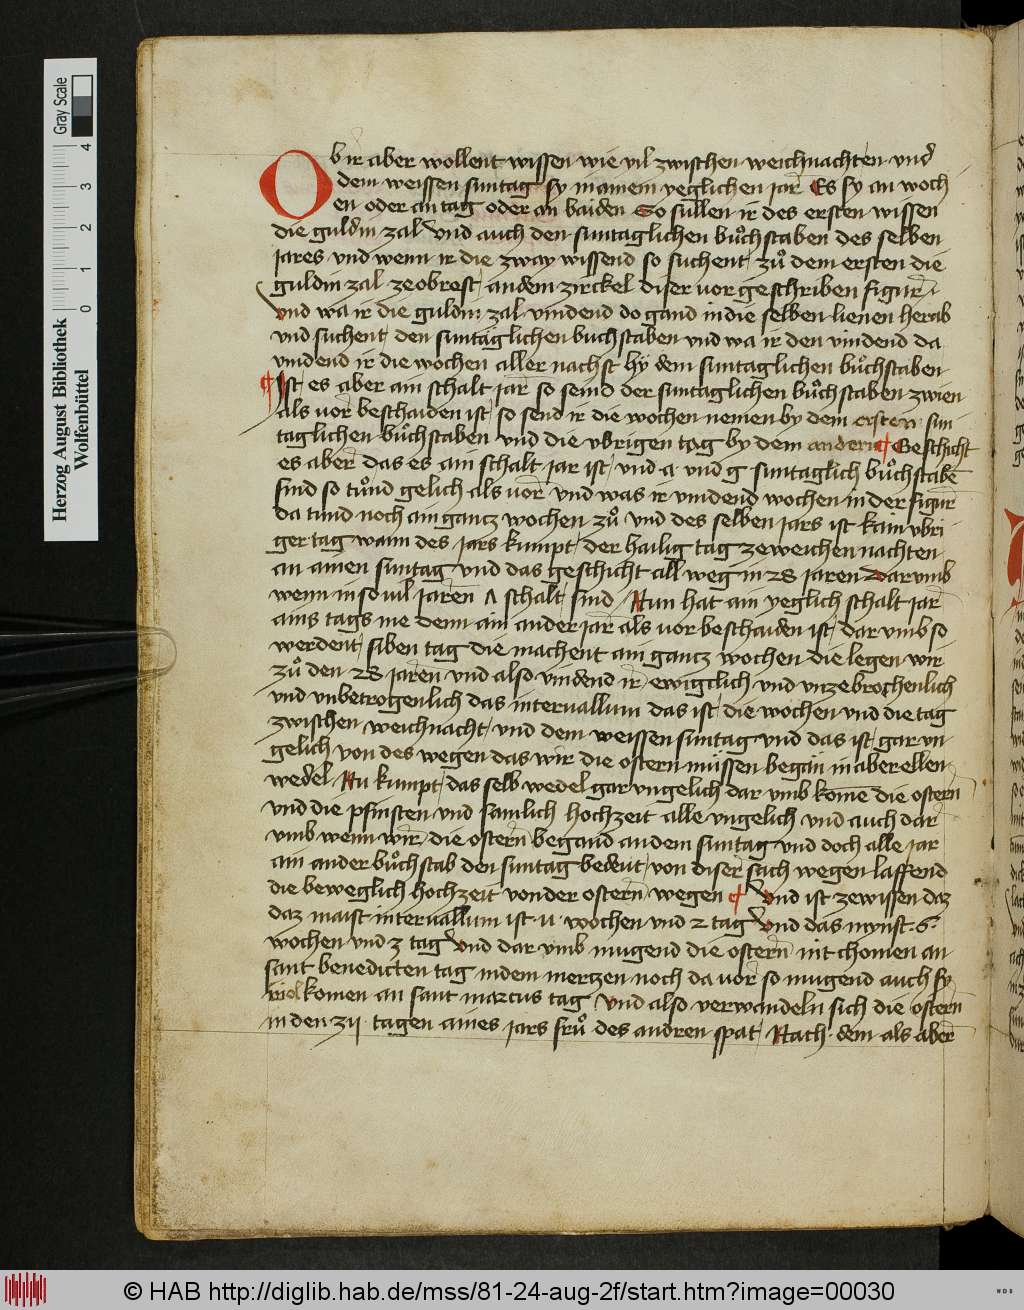 Ob ir aber wollent wissen wie vil zwischen weichnachten vnd
dem weissen suntag sy in ainem yeglichen jar Es sy an woch
en oder an tag oder an baiden So sullen ir des ersten wissen
die guldin zal vnd auch den suntaglichen bůchstaben des selben
jares vnd wenn ir die zway wissend so suchent zů dem ersten die
guldin zal zeobrest an dem zirckel diser vor geschriben figur
vnd wa ir die guldin zal vindend do gand in die selben lienen herab
vnd suchent den suntaglichen buchstaben vnd wa ir den vindend da
vindend ir die wochen aller nachst by dem suntaglichen bůchstaben
¶ Ist es aber ain schalt jar so seind der suntaglichen bůchstaben zwien
als vor beschaiden ist so send ir die wochen nemen by dem ersten sun
taglichen bůchstaben vnd die vbrigen tag by dem andern ¶ Geschicht
es aber das es ain schalt jar ist vnd a vnd g suntaglich bůchstabē
sind so tůnd gelich als vor vnd was ir vindend wochen in der figur
da tund noch ain gancz wochen zů vnd des selben jars ist kain vbri
ger tag wann des jars kumpt der hailig tag zeweichen nachten
an ainen suntag vnd das geschicht all weg in 28 jaren darumb
wenn in so vil jaren Λ schalt sind Nun hat ain yeglich schalt jar
ains tags me denn ain ander jar als vor beschaiden ist dar vmb so
werdent siben tag die machent ain gancz wochen die legen wir
zů den 28 jaren vnd also vindend ir ewigclich vnd vnzebrochenlich
vnd vnbetrogenlich das interuallum das ist die wochen vnd die tag
zwischen weichnacht vnd dem weissen suntag vnd das ist gar vn
gelich von des wegen das wir die ostern müssen began in aberellen
wedel Nu kumpt das selb wedel gar vngelich dar vmb kome die ostern
vnd die pfinsten vnd samlich hochzeit alle vngelich vnd auch dar
vmb wenn wir die ostern begand an dem suntag vnd doch alle jar
ain ander bůchstab den suntag bedeut von diser sach wegen lassend
die beweglich hochzeit von der ostern wegen ¶ Vnd ist zewissen daz
daz maist interuallum ist ·11· wochen vnd 2 tag Vnd das mynst ·6·
wochen vnd 3 tag vnd dar vmb mugend die ostern nit chomen an
sant benedicten tag in dem mertzen noch da vor so mugend auch sy
komen an sant marcus tag Vnd also verwandeln sich die ostern
in den tagen aines jars frů des andren spat Nach dem als aber
Herzog August Bibliothek
Wolfenbüttel
0 1 2 3 4
Gray Scale
© HAB http://diglib.hab.de/mss/81-24-aug-2f/start.htm?image=00030